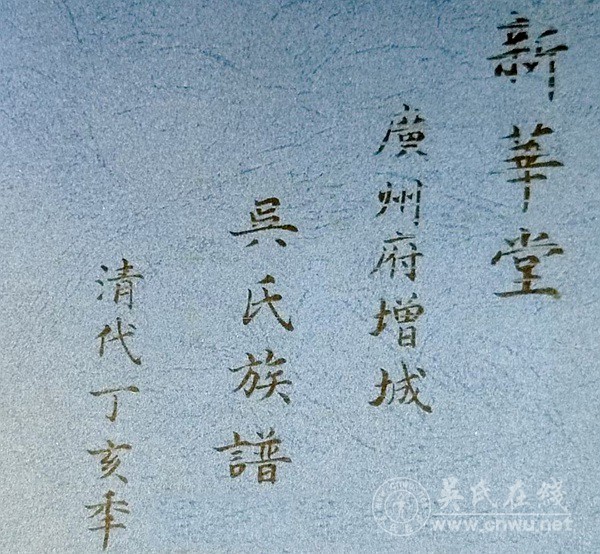 新華堂
廣州府增城
吳氏族譜
清代丁亥年
吴氏在线
www.cnwu.net